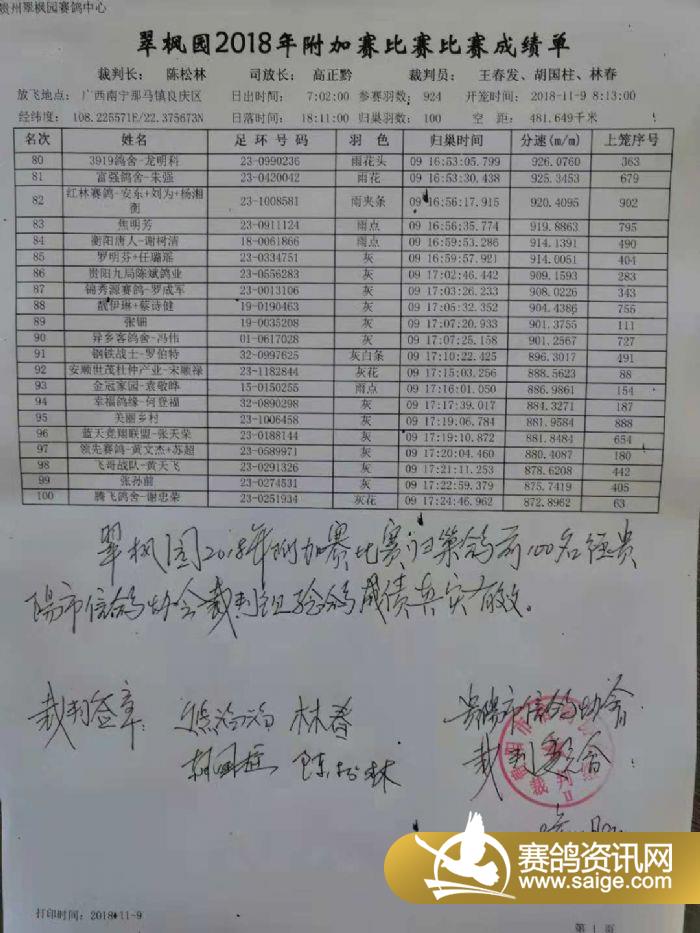 贵州翠枫园赛鸽中心
翠枫园2018年附加赛比赛比赛成绩单
裁判长: 陈松林 司放长: 高正黔 裁判员: 王春发、胡国柱、林春
放飞地点: 广西南宁那马镇良庆区 日出时间: 7:02:00 参赛羽数: 924 开笼时间: 2018-11-9 8:13:00
经纬度: 108.225571E/22.375673N 日落时间: 18:11:00 归巢羽数: 100 空 距: 481.649千米
名次 姓名 足 环 号 码 羽 色 归巢时间 分速(m/m) 上笼序号
80 3919鸽舍-龙明科 23-0990236 雨花头 09 16:53:05.799 926.0760 363
81 富强鸽舍-朱强 23-0420042 雨花 09 16:53:30.438 925.3453 679
82 红林赛鸽-安东+刘为+杨湘衡 23-1008581 雨夹条 09 16:56:17.915 920.4095 902
83 焦明芳 23-0911124 雨点 09 16:56:35.774 919.8863 795
84 衡阳唐人-谢树清 18-0061866 雨点 09 16:59:53.286 914.1391 490
85 罗明芬+任璐瑶 23-0334751 灰 09 16:59:57.921 914.0051 404
86 贵阳九局陈斌鸽业 23-0556283 灰 09 17:02:46.442 909.1593 283
87 锦秀源赛鸽-罗成军 23-0013106 灰 09 17:03:26.233 908.0226 343
88 靓伊琳+蔡诗健 19-0190463 灰 09 17:05:32.352 904.4386 755
89 张钿 19-0035208 灰 09 17:07:20.933 901.3755 111
90 异乡客鸽舍-冯伟 01-0617028 灰 09 17:07:25.158 901.2567 727
91 钢铁战士-罗伯特 32-0997625 灰白条 09 17:10:22.425 896.3017 491
92 安顺世茂杜仲产业-宋顺禄 23-1182844 灰花 09 17:15:03.256 888.5623 88
93 金冠家园-袁敬晔 15-0150255 雨点 09 17:16:01.050 886.9861 154
94 幸福鸽缘-何登福 32-0890298 灰 09 17:17:39.017 884.3271 187
95 美丽乡村 23-1006458 灰 09 17:19:06.784 881.9584 888
96 蓝天竞翔联盟-张天荣 23-0188144 灰 09 17:19:10.972 881.8484 654
97 领先赛鸽-黄文杰+苏超 23-0589971 灰 09 17:20:04.460 880.4087 180
98 飞哥战队-黄天飞 23-0291326 灰 09 17:21:11.253 878.6208 442
99 张孙前 23-0274531 灰 09 17:22:59.379 875.7419 405
100 腾飞鸽舍-谢忠荣 23-0251934 灰花 09 17:24:46.962 872.8962 63
翠枫园2018年附加赛比赛归巢鸽前100名经贵
阳市信鸽协会裁判组验鸽成绩真实有效。
裁判签章: 林春 贵阳市信鸽协会
胡国柱 陈松林 裁判委员会
裁判
II
赛鸽资讯网
www.saige.com
打印时间: 2018-11-9
第 1 页